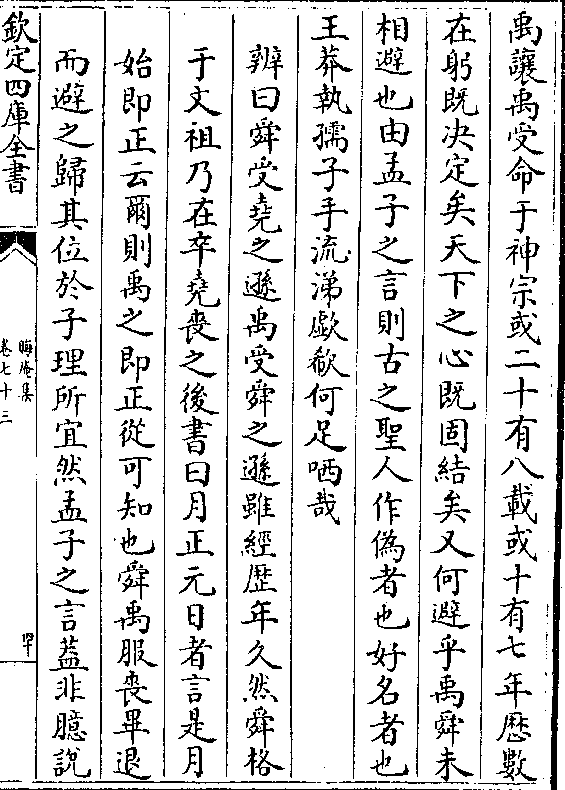 禹讓禹受命于神宗或二十有八載或十有七年歴數
在躬既决定矣天下之心既固結矣又何避乎禹舜未
相避也由孟子之言則古之聖人作偽者也好名者也
王莽執孺子手流涕歔欷何足哂哉
辨曰舜受堯之遜禹受舜之遜雖經歴年久然舜格
于文祖乃在卒堯喪之後書曰月正元日者言是月
始即正云爾則禹之即正從可知也舜禹服喪畢退
而避之歸其位於子理所宜然孟子之言葢非臆説
欽定四庫全書
晦庵集
卷七十三
四十